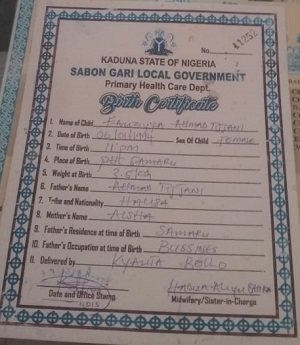 KADUNA STATE OF NIGERIA
No.
SABON GARI LOCAL GOVERNMENT
Primary Health Care Dept.
Birth Certificate
1. Name of Child AHMAD TIJJANI
2. Date of Birth Sex Of Child FEMALE
3. Time of Birth 11PM
4. Place of Birth PHC SAMARU
5. Weight at Birth 3.5KG
6. Father's Name AHMAD TIJJANI
7. Tribe and Nationality HAUSA
8. Mother's Name AISHA
9. Father's Residence at time of Birth SAMARU
10. Father's Occupation at time of Birth
11. Delivered by
Date and Office Stamp
Midwifery/Sister-in-Charge